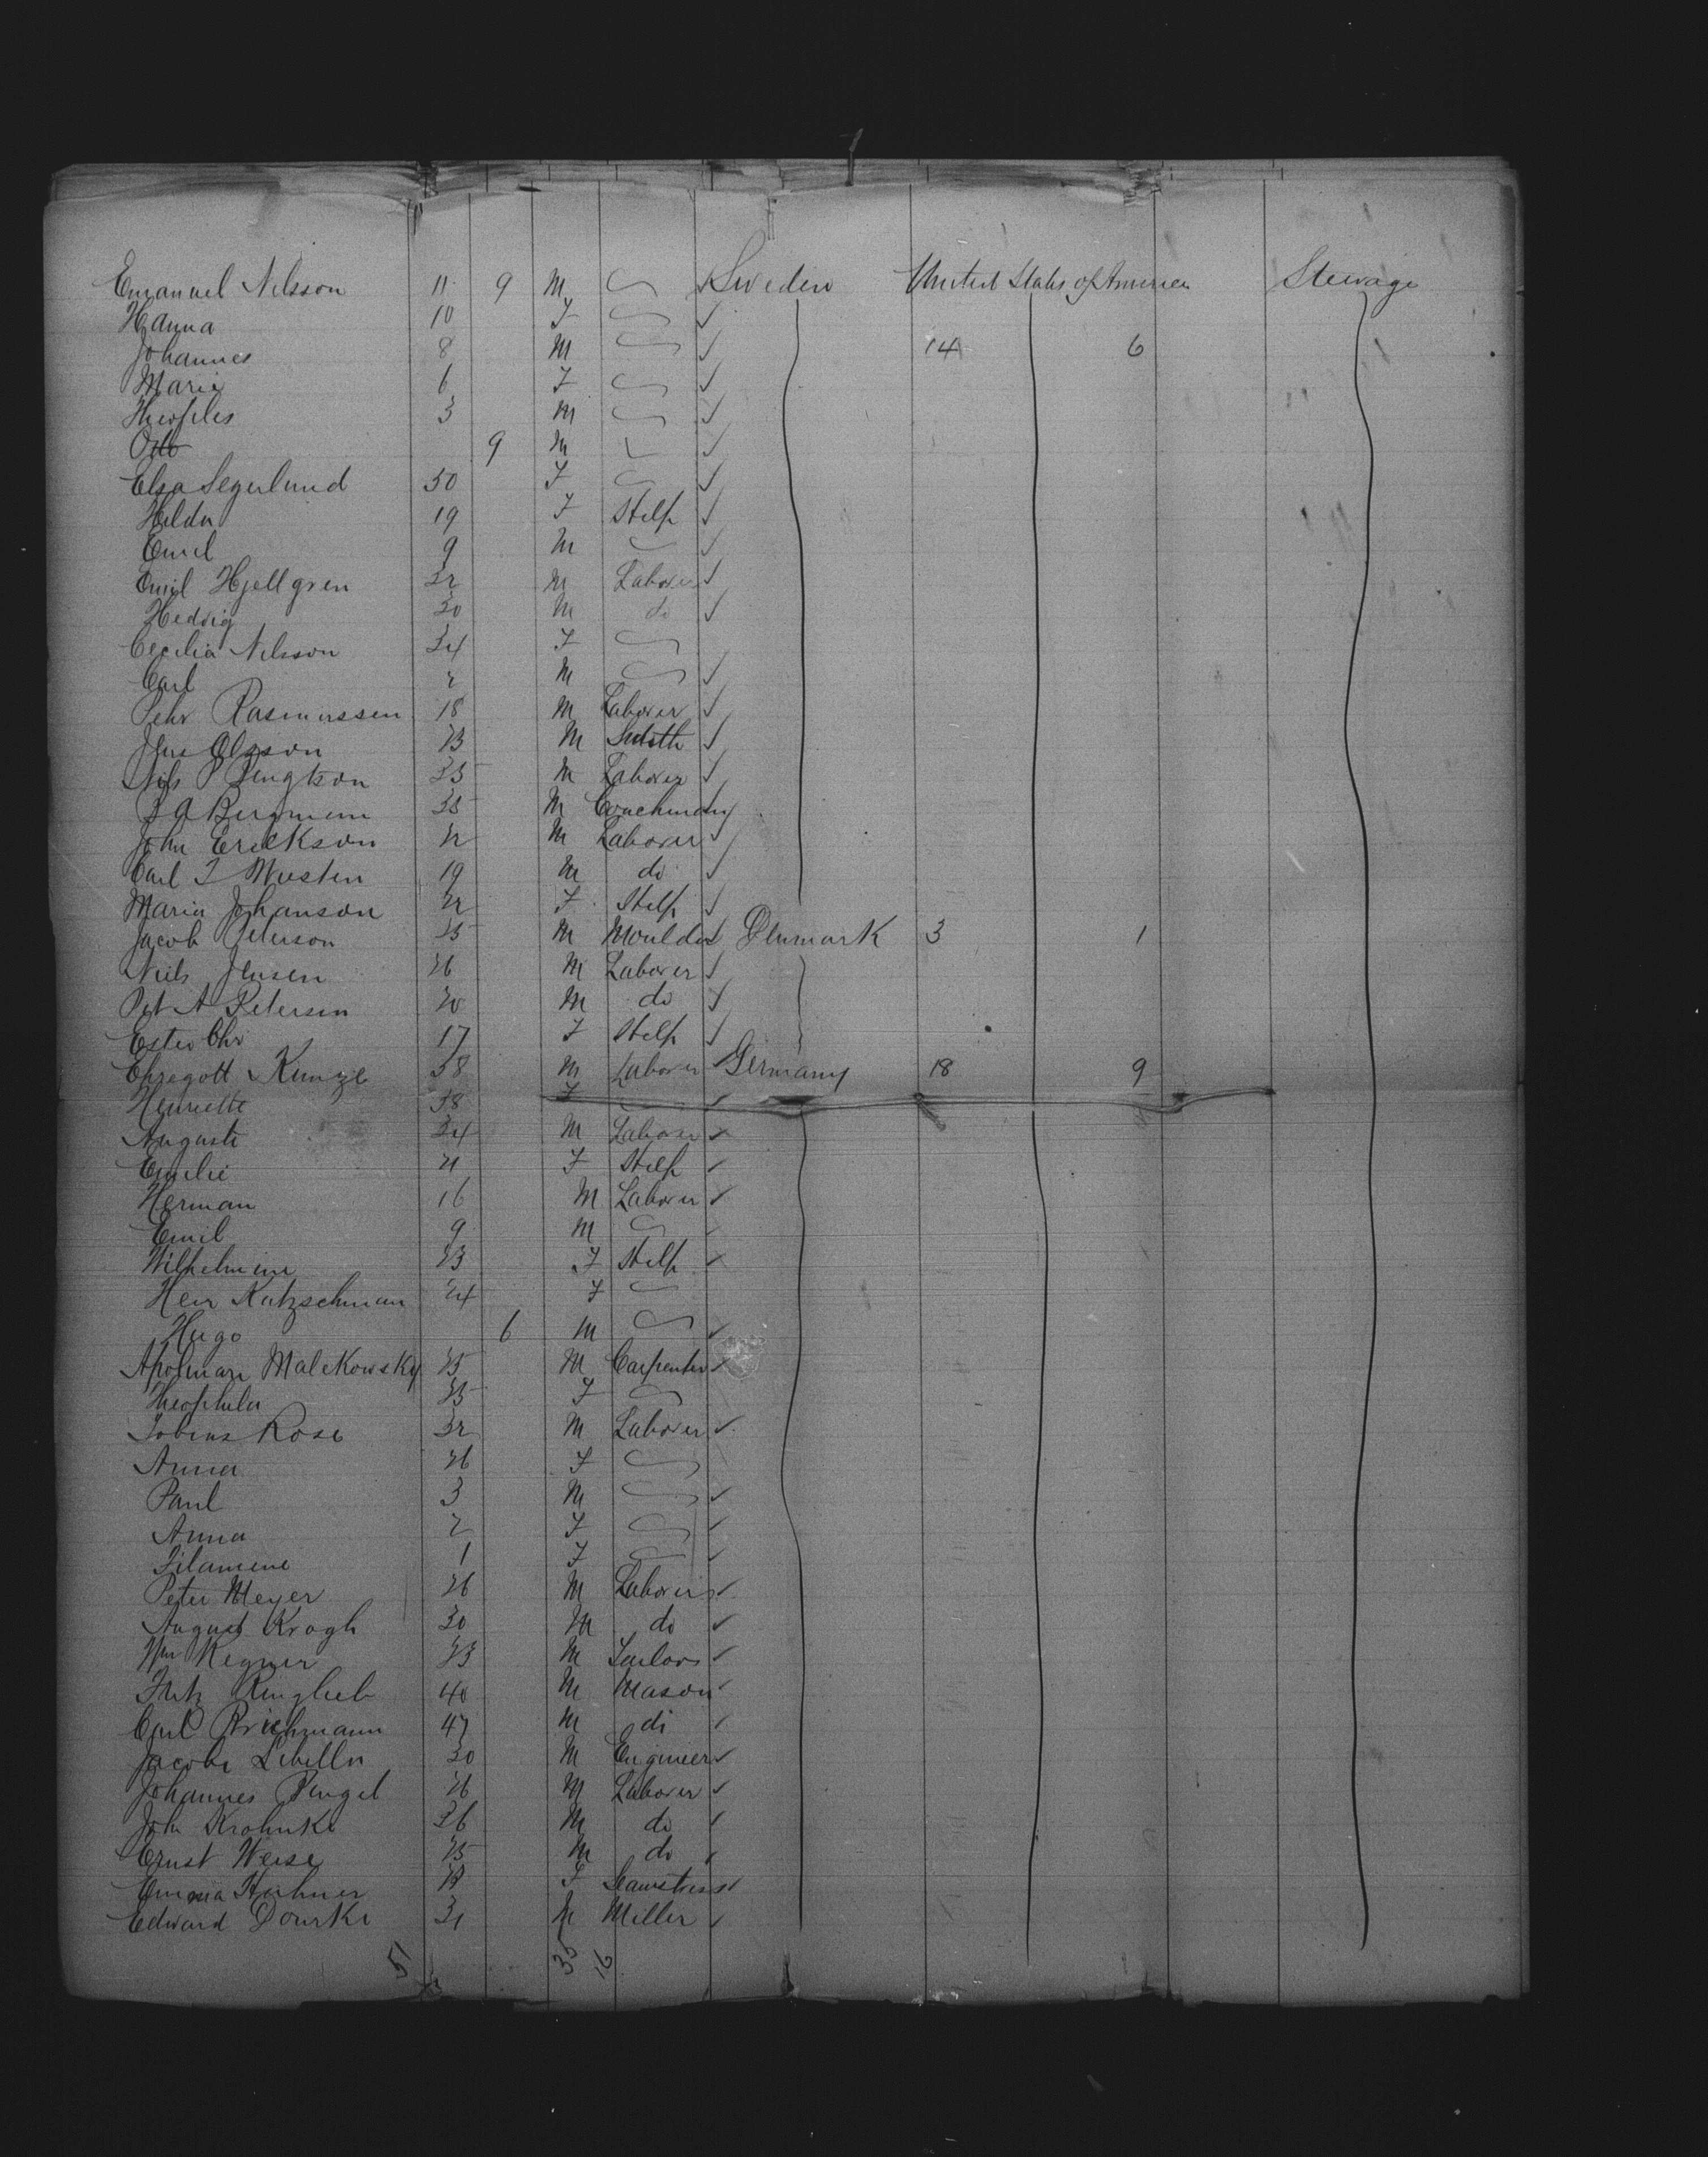 Emanuel Nilsson 11 9 M Sweden United States of America Stewage
Hanna 10 F
Johannes 8 M 14 6
Marie 6 F
Theofiles 3 M
Otto 9 M
Elsa Segerlund 50 F
Hilda 19 F Help
Emil 9 M
Emil Hjellgren 32 M Laborer
Hedvig 30 M do
Cecilia Nilsson 34 F
Carl 2 M
Pehr Rasmussen 18 M Laborer
Jens Olsson 23 M Smith
Nils P Bengtson 35 M Laborer
Bergmann 35 M Coachman
John Erickson 22 M Laborer
Carl F 19 M do
Maria Johanson 22 F Help
Jacob Peterson 25 M Moulder Denmark 3 1
Niels Jensen 26 M Laborer
Pet A Petersen 20 M do
Ester Chr 17 F Help
Ehregott Kunze 58 M Laborer Germany 18 9
Henriette 58 F
August 34 M Laborer
Emilie 21 F Help
Herman 16 M Laborer
Emil 9 M
Wilhelmine 23 F Help
Henr Katzschman 24 F
Hugo 6 M
Malekowsky 25 M Carpenter
Theophila 25 F
Tobias Rose 32 M Laborer
Anna 26 F
Paul 3 M
Anna 2 F
Filamene 1 F
Peter Meyer 26 M Laborer
August Krogh 30 M do
Wm Regner 23 M Tailor
Fritz Ringlieb 40 M Mason
Carl Brichmann 47 M do
Jacob 30 M Engineer
Johannes Pingel 26 M Laborer
Joh Krohnke 26 M do
Ernst Weise 25 M do
Emma Hübner F Seamstress
Edward Dourke 31 M Miller
51 35 16